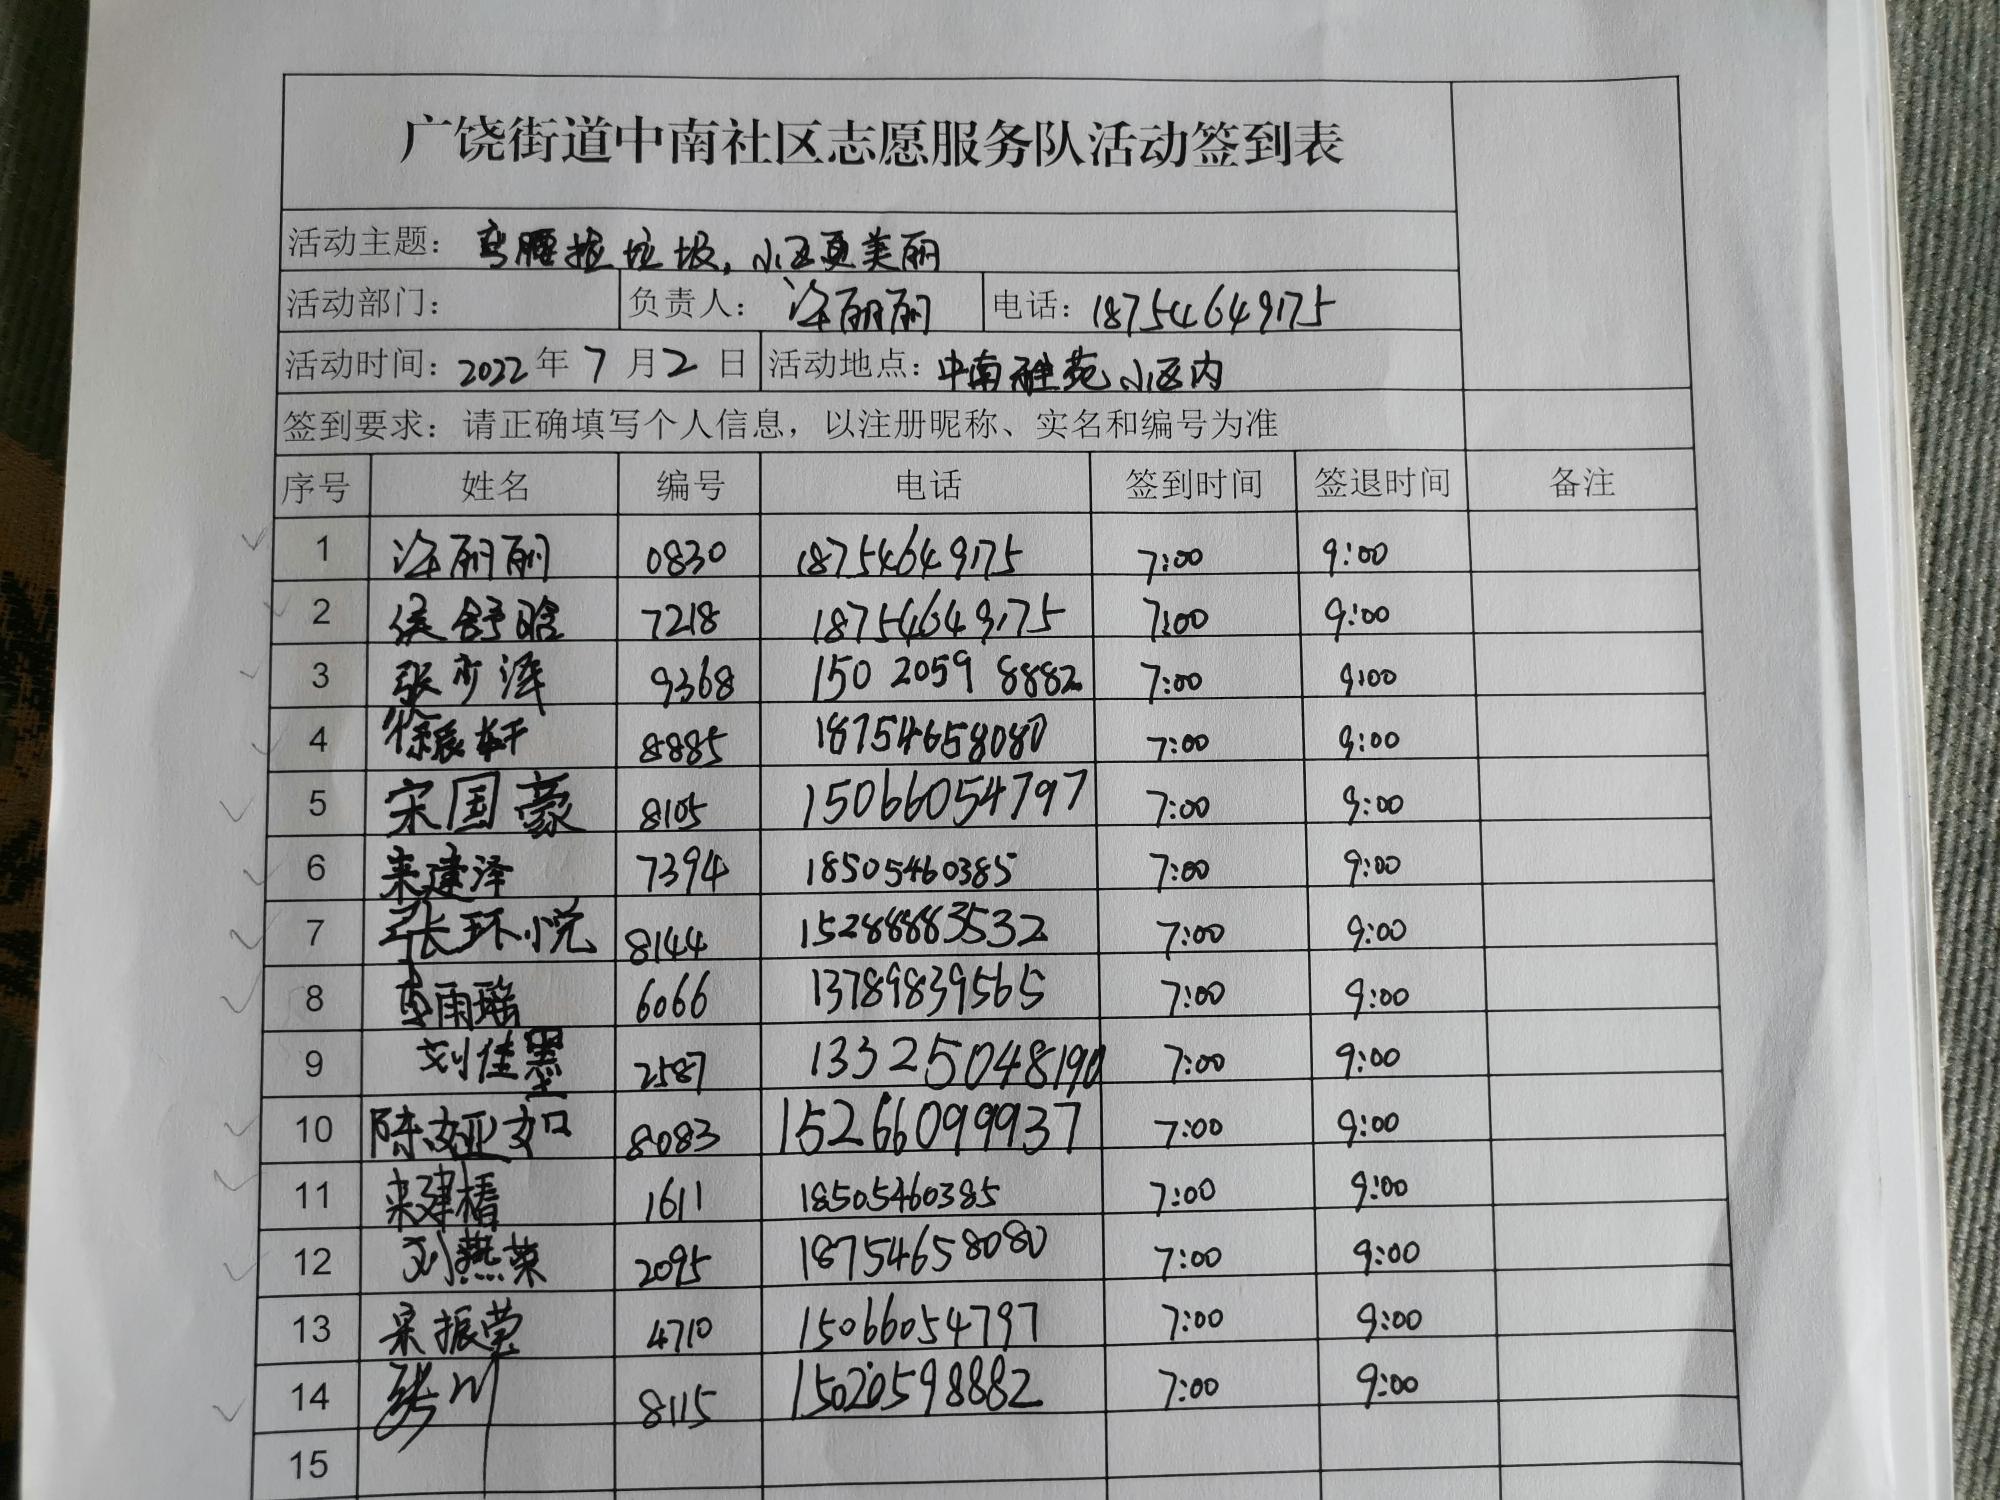 广饶街道中南社区志愿服务队活动签到表
活动主题：弯腰捡垃圾，小区更美丽
活动部门： 负责人：许丽丽 电话：18754649175
活动时间：2022年7月2日 活动地点：中南雅苑小区内
签到要求：请正确填写个人信息，以注册昵称、实名和编号为准
序号 姓名 编号 电话 签到时间 签退时间 备注
1 许丽丽 0830 18754649175 7:00 9:00
2 侯舒晗 7218 18754649175 7:00 9:00
3 张少泽 9368 150 2059 8882 7:00 9:00
4 徐宸轩 8885 18754658080 7:00 9:00
5 宋国豪 8105 15066054797 7:00 9:00
6 来建泽 7394 18505460385 7:00 9:00
7 张环悦 8144 15288883532 7:00 9:00
8 雨瑶 6066 13789839565 7:00 9:00
9 刘佳墨 2587 13325048190 7:00 9:00
10 陈娅如 8083 15266099937 7:00 9:00
11 来建椿 1611 18505460385 7:00 9:00
12 刘燕荣 2095 18754658080 7:00 9:00
13 宋振莹 4710 15066054797 7:00 9:00
14 张川 8115 15020598882 7:00 9:00
15